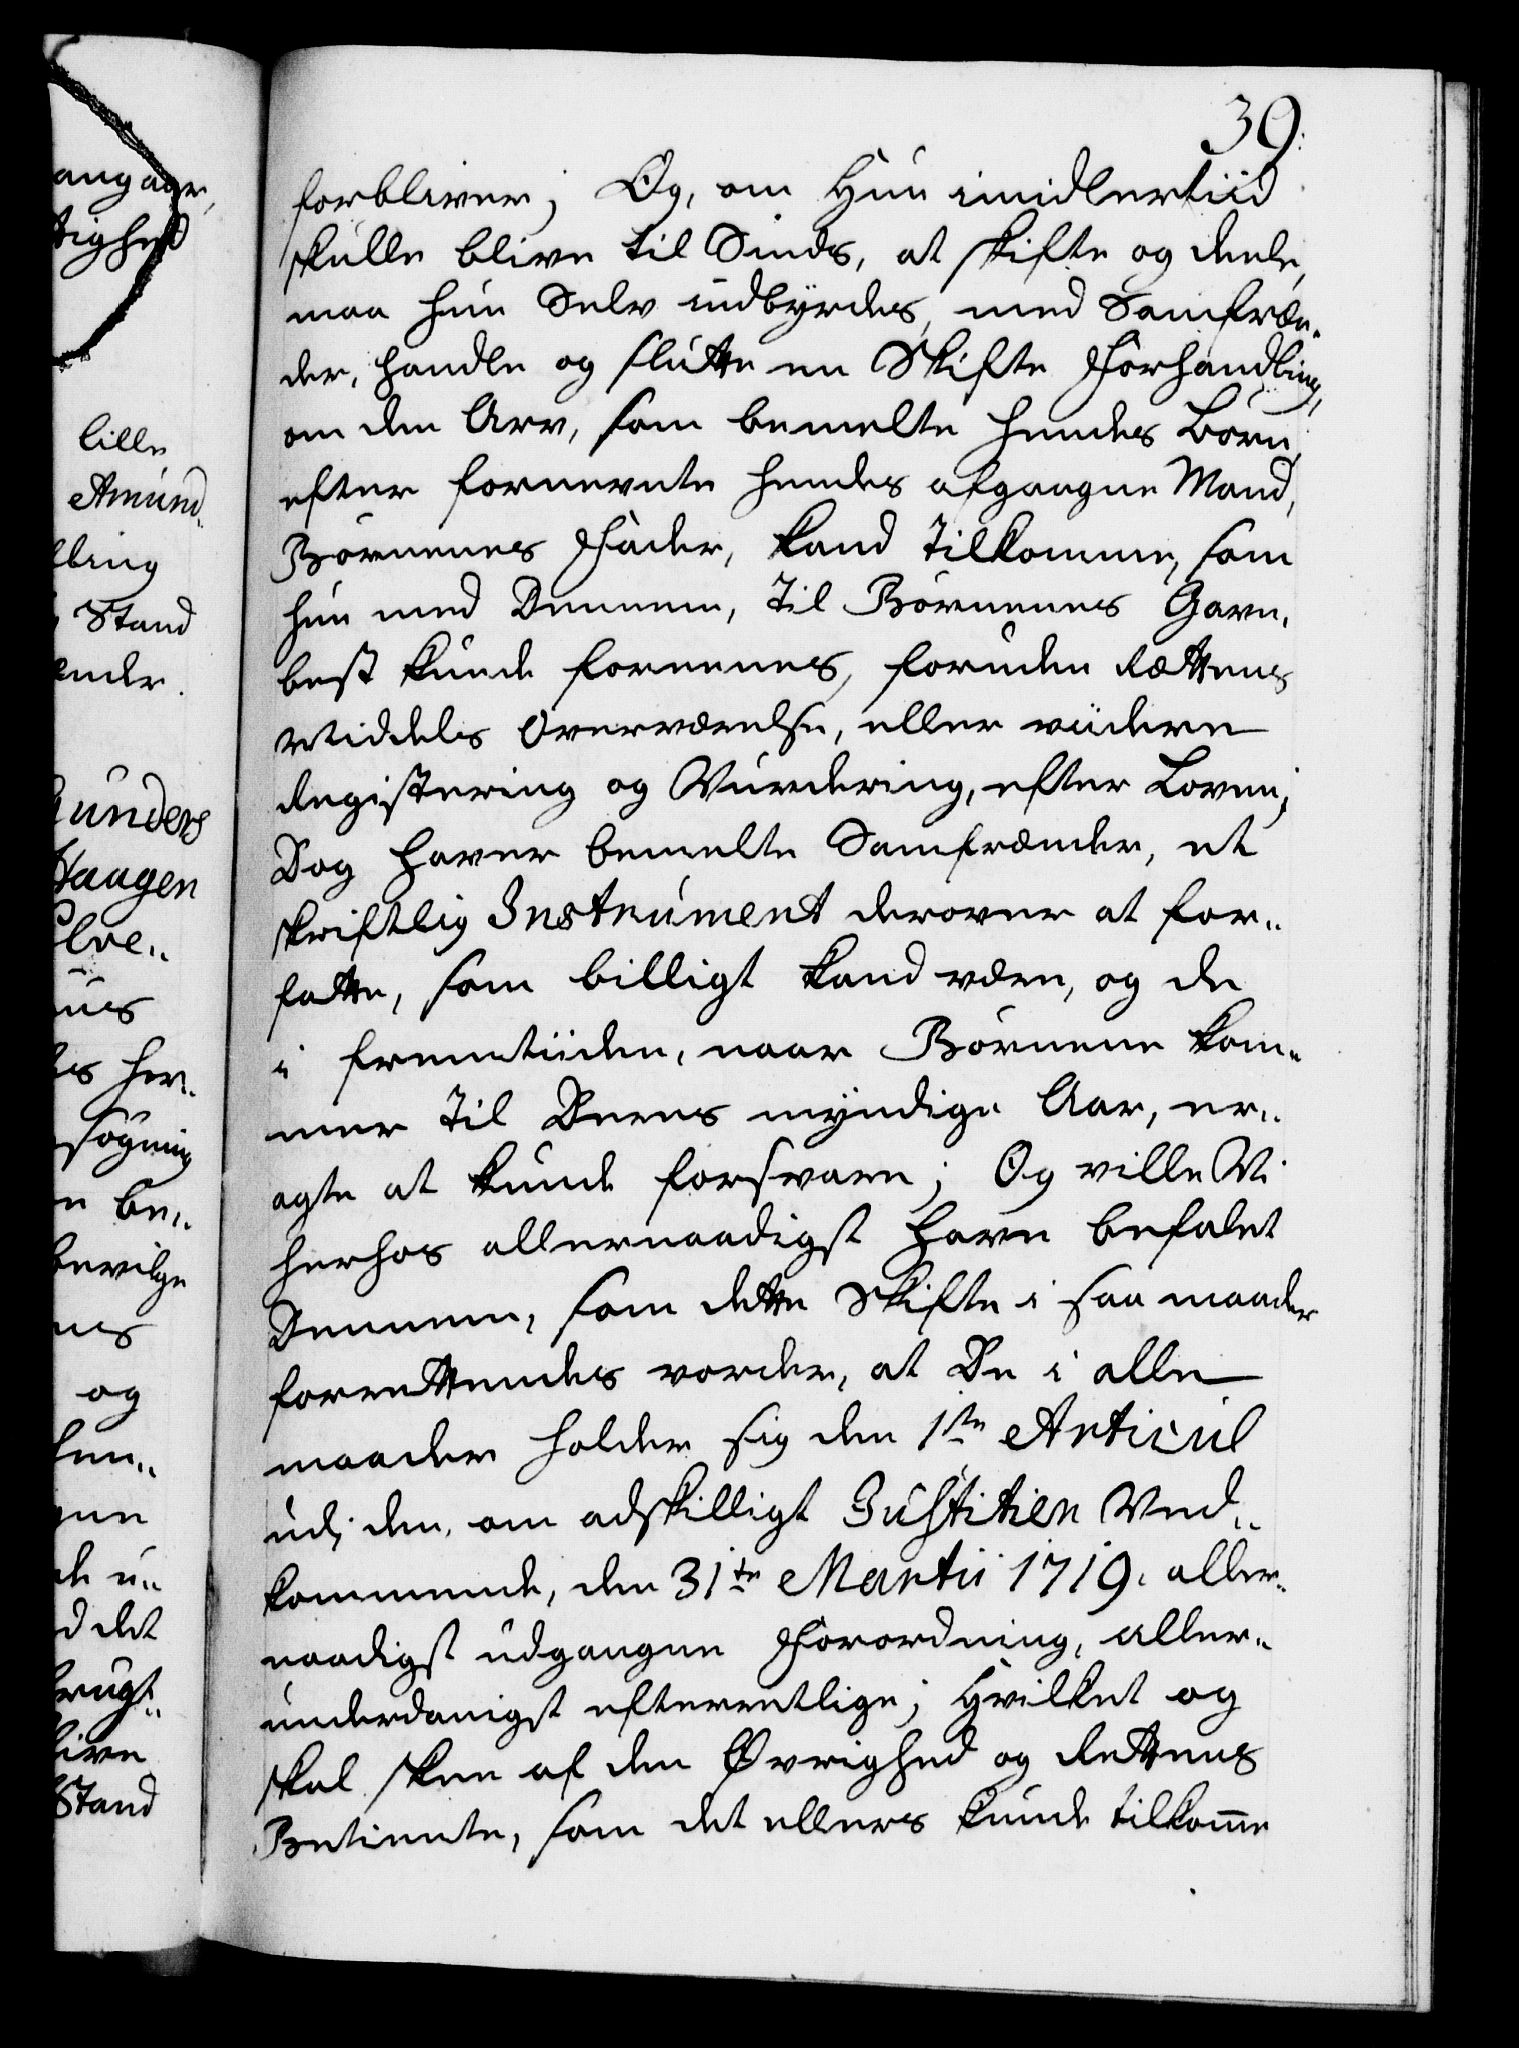 39.
forbliver; Og, om Hun imidlertiid
skulle blive til Sinds, at skifte og deele,
maa hun Selv indbyrdes, med Samfræn-
der, handle og slutte en Skifte Forhandling,
om den Arv, som bemelte hendes Børn,
efter fornevnte hendes afgangne Mand,
Børnenes Fader, kand tilkomme, som
hun med Dennem, til Børnenes Gavn,
best kunde foreenes, foruden Rættens
Middels Overværelse, eller viidere
Registering og Vurdering, efter Loven;
Dog haver bemelte Samfrænder, et
skriftlig Instrument derover at for-
fatte, som billigt kand være, og de
i fremtiiden, naar Børnene kom-
mer til Deres myndige Aar, er-
agte at kunde forsvare; Og ville Vi
herhos allernaadigst have befalet
Dennem, som dette Skifte i saa maader
forrettendes vorder, at De i alle
maader holder sig den 1ste Articul
udj den, om adskilligt Justitien Ved-
kommende, den 31te Martii 1719. aller-
naadigst udgangne Forordning, aller-
underdanigst efterrettlige; Hvilket og
skal skee af den Øvrighed og Rettens
Betiente, som det ellers kunde tilkomme
angaar,
tighed
lille
Amund-
ling
Stand
ender.
Gunders
Haagen
Elve-
ues
es her-
søgning
e be-
bevilge
nes
og
hen-
gne
de u-
d det
brugt-
live
Stand